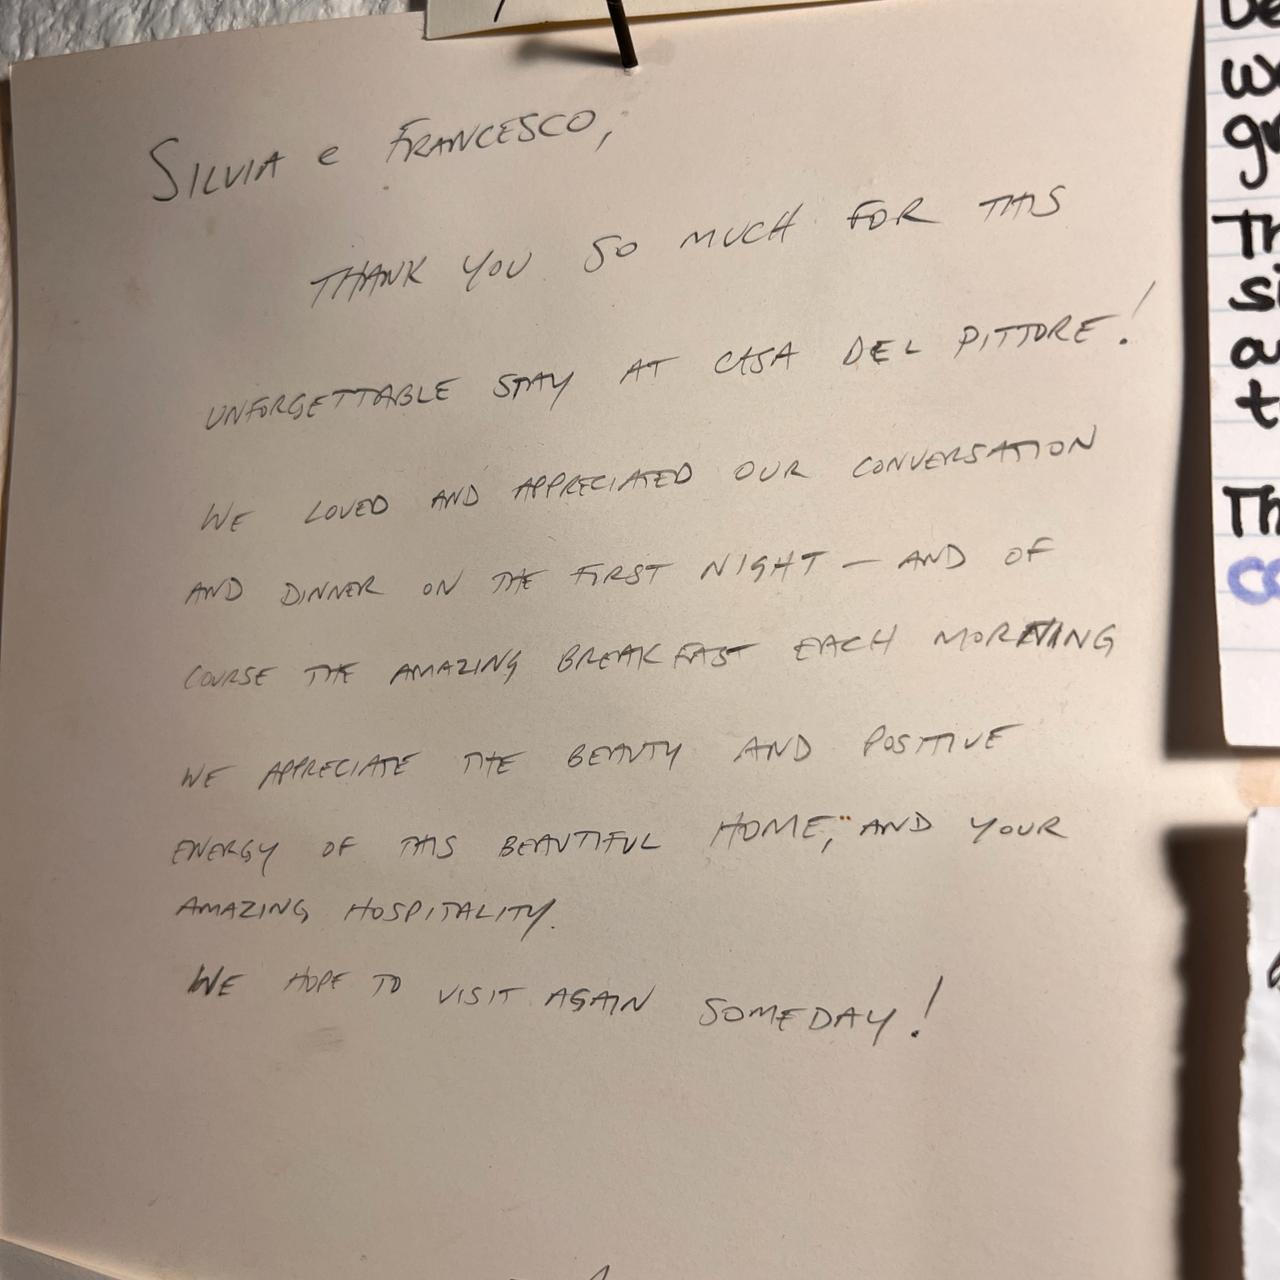 SILVIA e FRANCESCO,
THANK YOU SO MUCH FOR THIS
UNFORGETTABLE STAY AT CASA DEL PITTORE!
WE LOVED AND APPRECIATED OUR CONVERSATION
AND DINNER ON THE FIRST NIGHT — AND OF
COURSE THE AMAZING BREAKFAST EACH MORNING
WE APPRECIATE THE BEAUTY AND POSITIVE
ENERGY OF THIS BEAUTIFUL HOME, AND YOUR
AMAZING HOSPITALITY.
WE HOPE TO VISIT AGAIN SOMEDAY!